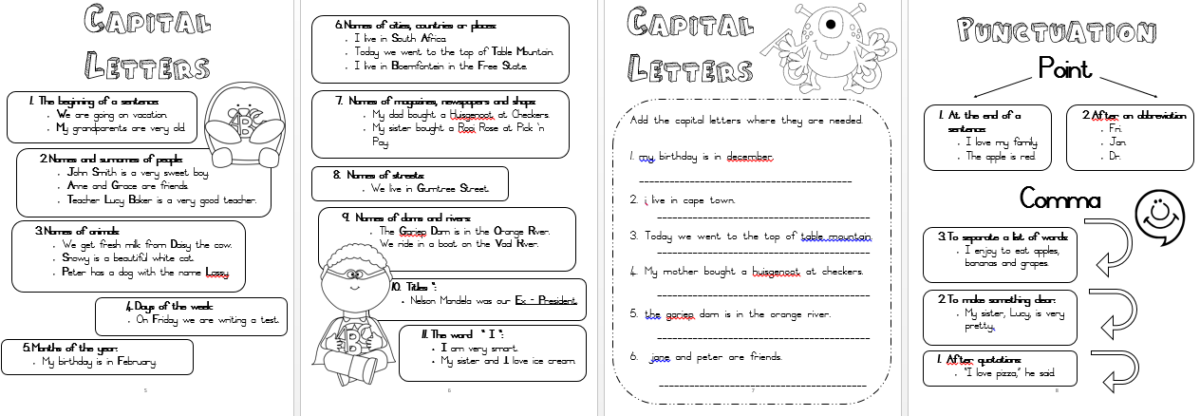 Capital
Letters
1. The beginning of a sentence:
• We are going on vacation.
• My grandparents are very old.
2.Names and surnames of people:
• John Smith is a very sweet boy.
• Anne and Grace are friends.
• Teacher Lucy Baker is a very good teacher.
3.Names of animals:
• We get fresh milk from Daisy the cow.
• Snowy is a beautiful white cat.
• Peter has a dog with the name Lassy.
4.Days of the week:
• On Friday we are writing a test.
5.Months of the year:
• My birthday is in February.
5
6.Names of cities, countries or places:
• I live in South Africa.
• Today we went to the top of Table Mountain.
• I live in Bloemfontein in the Free State.
7. Names of magazines, newspapers and shops:
• My dad bought a Huisgenoot at Checkers.
• My sister bought a Rooi Rose at Pick 'n
Pay.
8. Names of streets:
• We live in Gumtree Street.
9. Names of dams and rivers:
• The Gariep Dam is in the Orange River.
We ride in a boat on the Vaal River.
10. Titles ":
• Nelson Mandela was our Ex - President.
11. The word " I ":
• I am very smart.
• My sister and I love ice cream.
B
6
Capital
Letters
Add the capital letters where they are needed.
1. my birthday is in december.
2. i live in cape town.
3. Today we went to the top of table mountain.
4. My mother bought a huisgenoot at checkers.
5. the gariep dam is in the orange river.
6. jane and peter are friends.
7
Punctuation
Point
1. At the end of a
sentence:
• I love my family.
• The apple is red.
2.After an abbreviation:
• Fri.
• Jan.
• Dr.
Comma
3.To separate a list of words:
• I enjoy to eat apples,
bananas and grapes.
2.To make something clear:
• My sister, Lucy, is very
pretty.
1. After quotations:
• "I love pizza," he said.
8